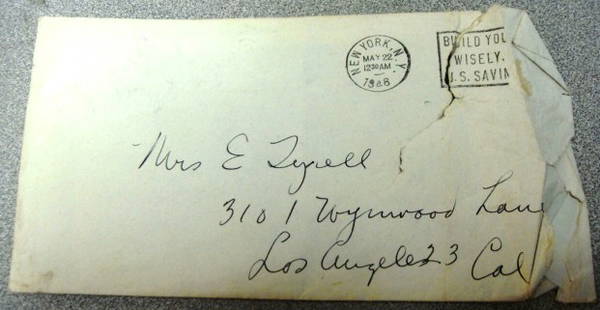 NEW YORK, N.Y.
MAY 22
12 30 AM
BUILD YOU
WISELY.
U.S. SAVIN
Mrs E Tyrell
3101 Wynwood Lane
Los Angeles 23 Cal